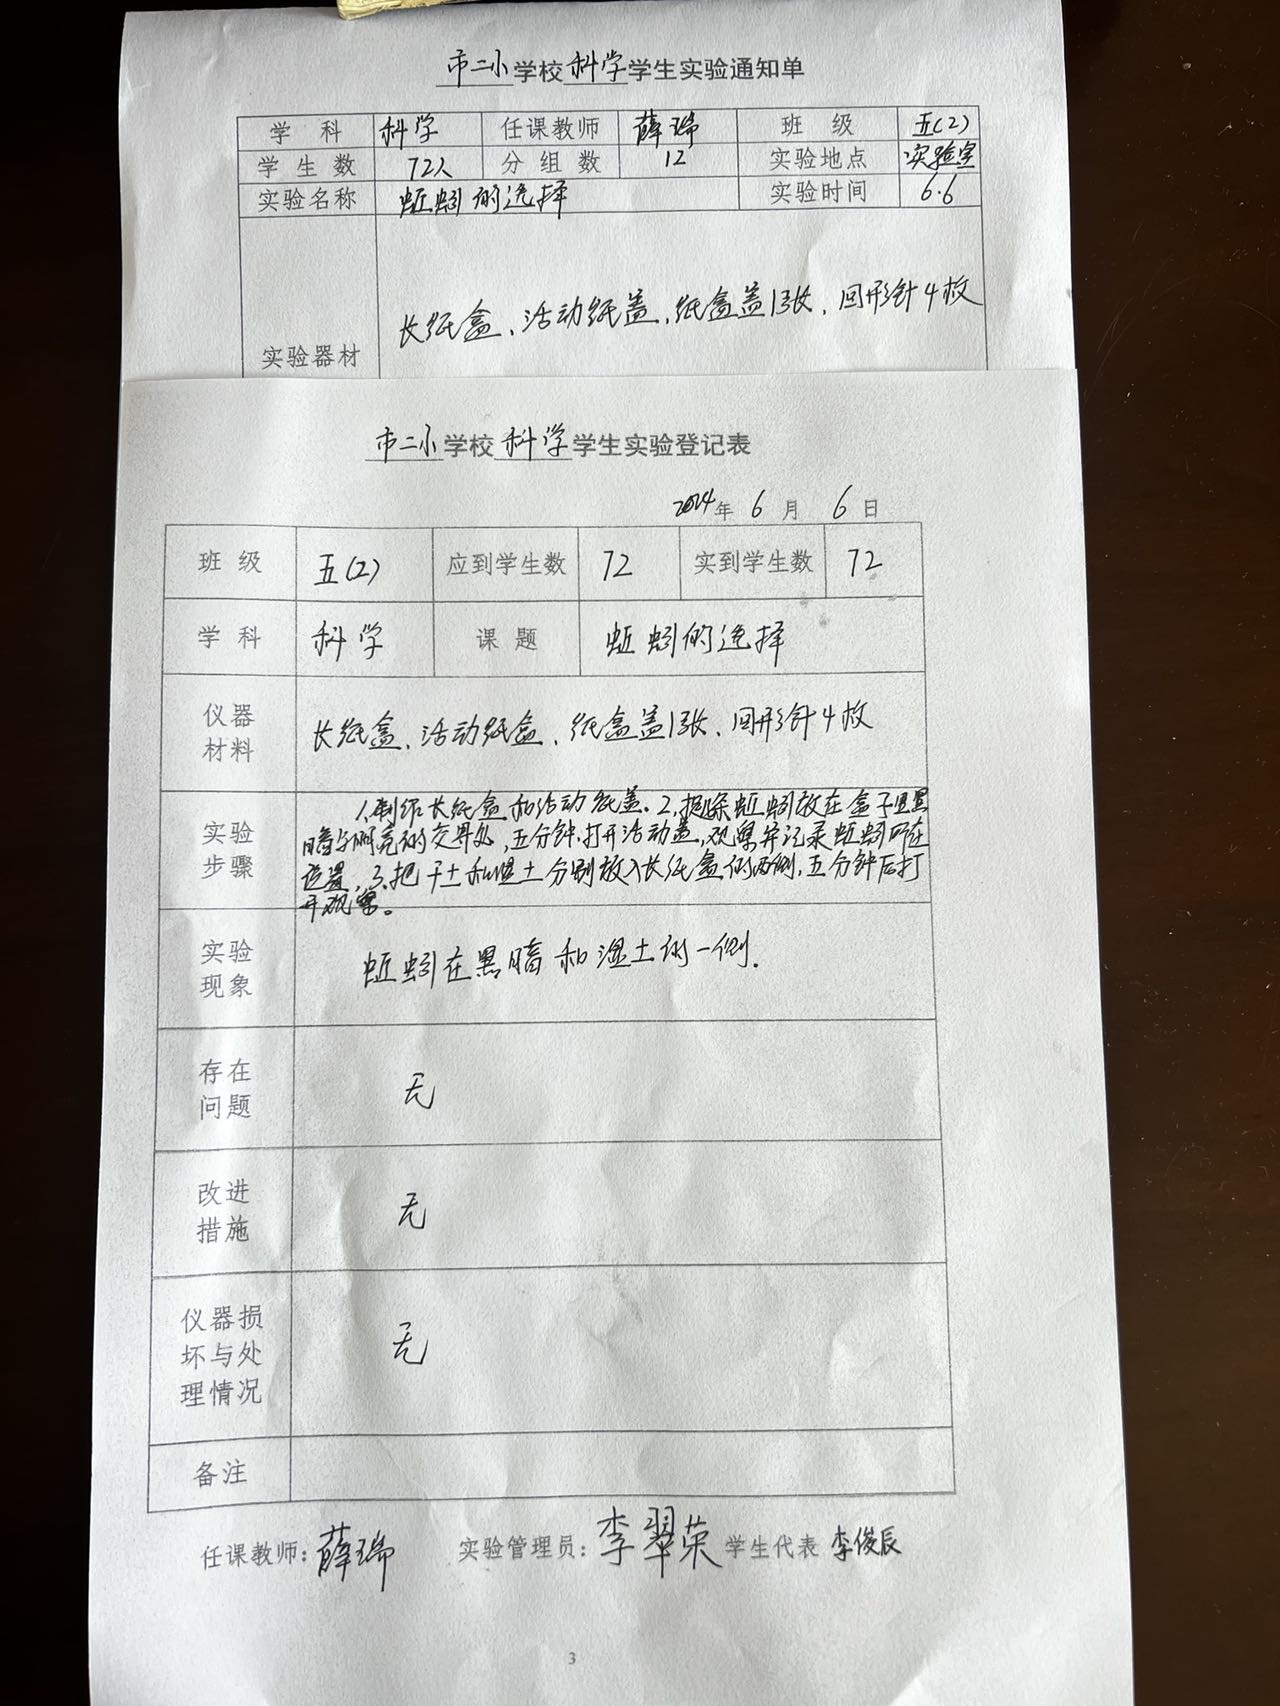 市二小学校科学学生实验通知单
学 科 科学 任课教师 薛瑞 班 级 五(2)
学 生 数 72人 分 组 数 12 实验地点 实验室
实验名称 蚯蚓的选择 实验时间 6.6
长纸盒、活动纸盖、纸盒盖1张、回形针4枚
实验器材
市二小学校科学学生实验登记表
2024年 6 月 6 日
班 级 五(2) 应到学生数 72 实到学生数 72
学 科 科学 课 题 蚯蚓的选择
仪器
材料
长纸盒、活动纸盒、纸盒盖1张、回形针4枚
实验
步骤
1.制作长纸盒和活动纸盖.2.把蚯蚓放在盒子里黑
暗与明亮的交界处,五分钟,打开活动盖,观察并记录蚯蚓所在
位置,3.把干土和湿土分别放入长纸盒的两侧,五分钟后打
开观察。
实验
现象
蚯蚓在黑暗和湿土的一侧.
存在
问题
无
改进
措施
无
仪器损
坏与处
理情况
无
备注
任课教师:薛瑞 实验管理员:李翠荣 学生代表 李俊辰
3